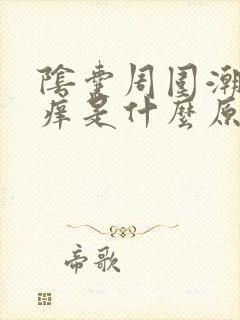 陰囊周围潮
痒是什麼原
帝歌